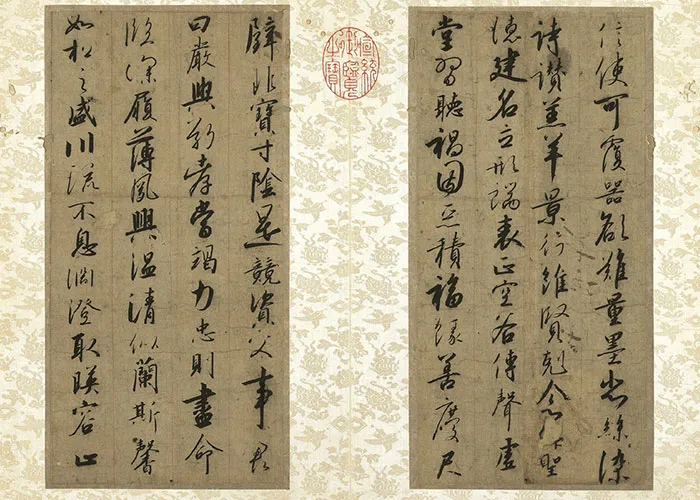 信使可覆器欲難量墨悲絲染
詩讚羔羊景行維賢剋念作聖
德建名立形端表正空谷傳聲虛
堂習聽禍因惡積福緣善慶尺
宣統御覽之寶
璧非寶寸陰是競資父事君
曰嚴與敬孝當竭力忠則盡命
臨深履薄夙興溫清似蘭斯馨
如松之盛川流不息淵澄取暎容止